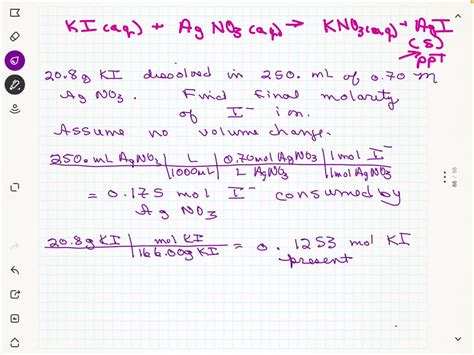 KI(aq) + AgNO3(aq) → KNO3(aq) + AgI
(s)
ppt
20.8g KI dissolved in 250. mL of 0.70 M
AgNO3. Find final molarity
of I⁻ ion.
Assume no volume change.
250. mL AgNO3 | L | 0.70 mol AgNO3 | 1 mol I⁻
1000mL | L AgNO3 | 1 mol AgNO3
= 0.175 mol I⁻ consumed by
AgNO3
20.8g KI | mol KI = 0.1253 mol KI
166.00g KI present